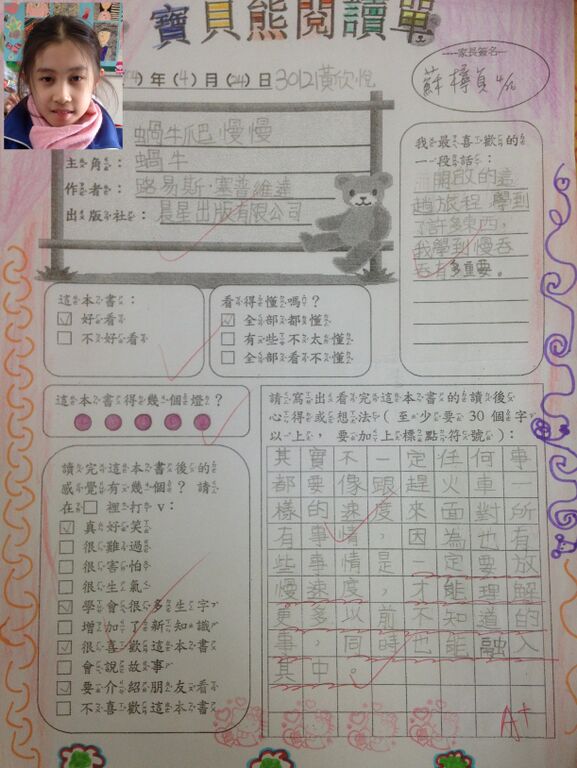 寶貝熊閱讀單
年(4)月(24)日3012黃欣悅
家長簽名
蝸牛爬慢慢
主角：蝸牛
作者：路易斯·塞普維達
出版社：晨星出版有限公司
我最喜歡的
一段話：
開啟的這
趟旅程 學到
了許多東西，
我學到慢吞
吞有多重要。
這本書：
✓好看
不好看
看得懂嗎？
✓全部都懂
有些不太懂
全部看不懂
這本書得幾個燈？
讀完這本書後的
感覺有幾個？請
在□裡打v：
✓真好笑
很難過
很害怕
很生氣
✓學會很多生字
增加了新知識
✓很喜歡這本書
會說故事
✓要介紹朋友看
不喜歡這本書
請寫出看完這本書的讀後
心得或想法（至少要30個字
以上，要加上標點符號）：
其實不一定任何事
都要像跟趕火車一
樣的速度來面對所
有事情，因為也有
些事情是一定要放
慢速度，才能理解
更多以前不知道的
事，同時也能融入
其中。
A+